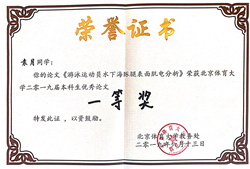 荣誉证书
袁月同学：
你的论文《游泳运动员水下海豚腿表面肌电分析》荣获北京体育大
学二〇一九届本科生优秀论文
一等奖
特发此证，以资鼓励。
北京体育大学教务处
二〇一九年六月十三日